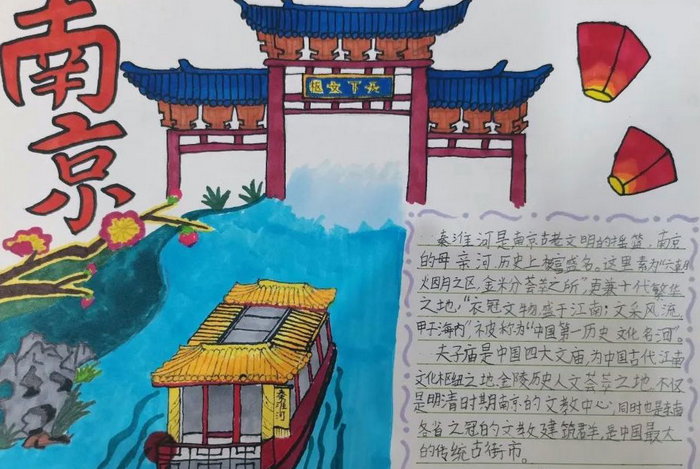 南京
天下文枢
秦淮河
秦淮河是南京古老文明的摇篮,南京
的母亲河,历史上极富盛名。这里素为"六朝
烟月之区,金粉荟萃之所",更兼十代繁华
之地,"衣冠文物,盛于江南;文采风流,
甲于海内",被称为"中国第一历史文化名河"。
夫子庙是中国四大文庙,为中国古代江南
文化枢纽之地、金陵历史人文荟萃之地,不仅
是明清时期南京的文教中心,同时也是东南
各省之冠的文教建筑群,是中国最大
的传统古街市。